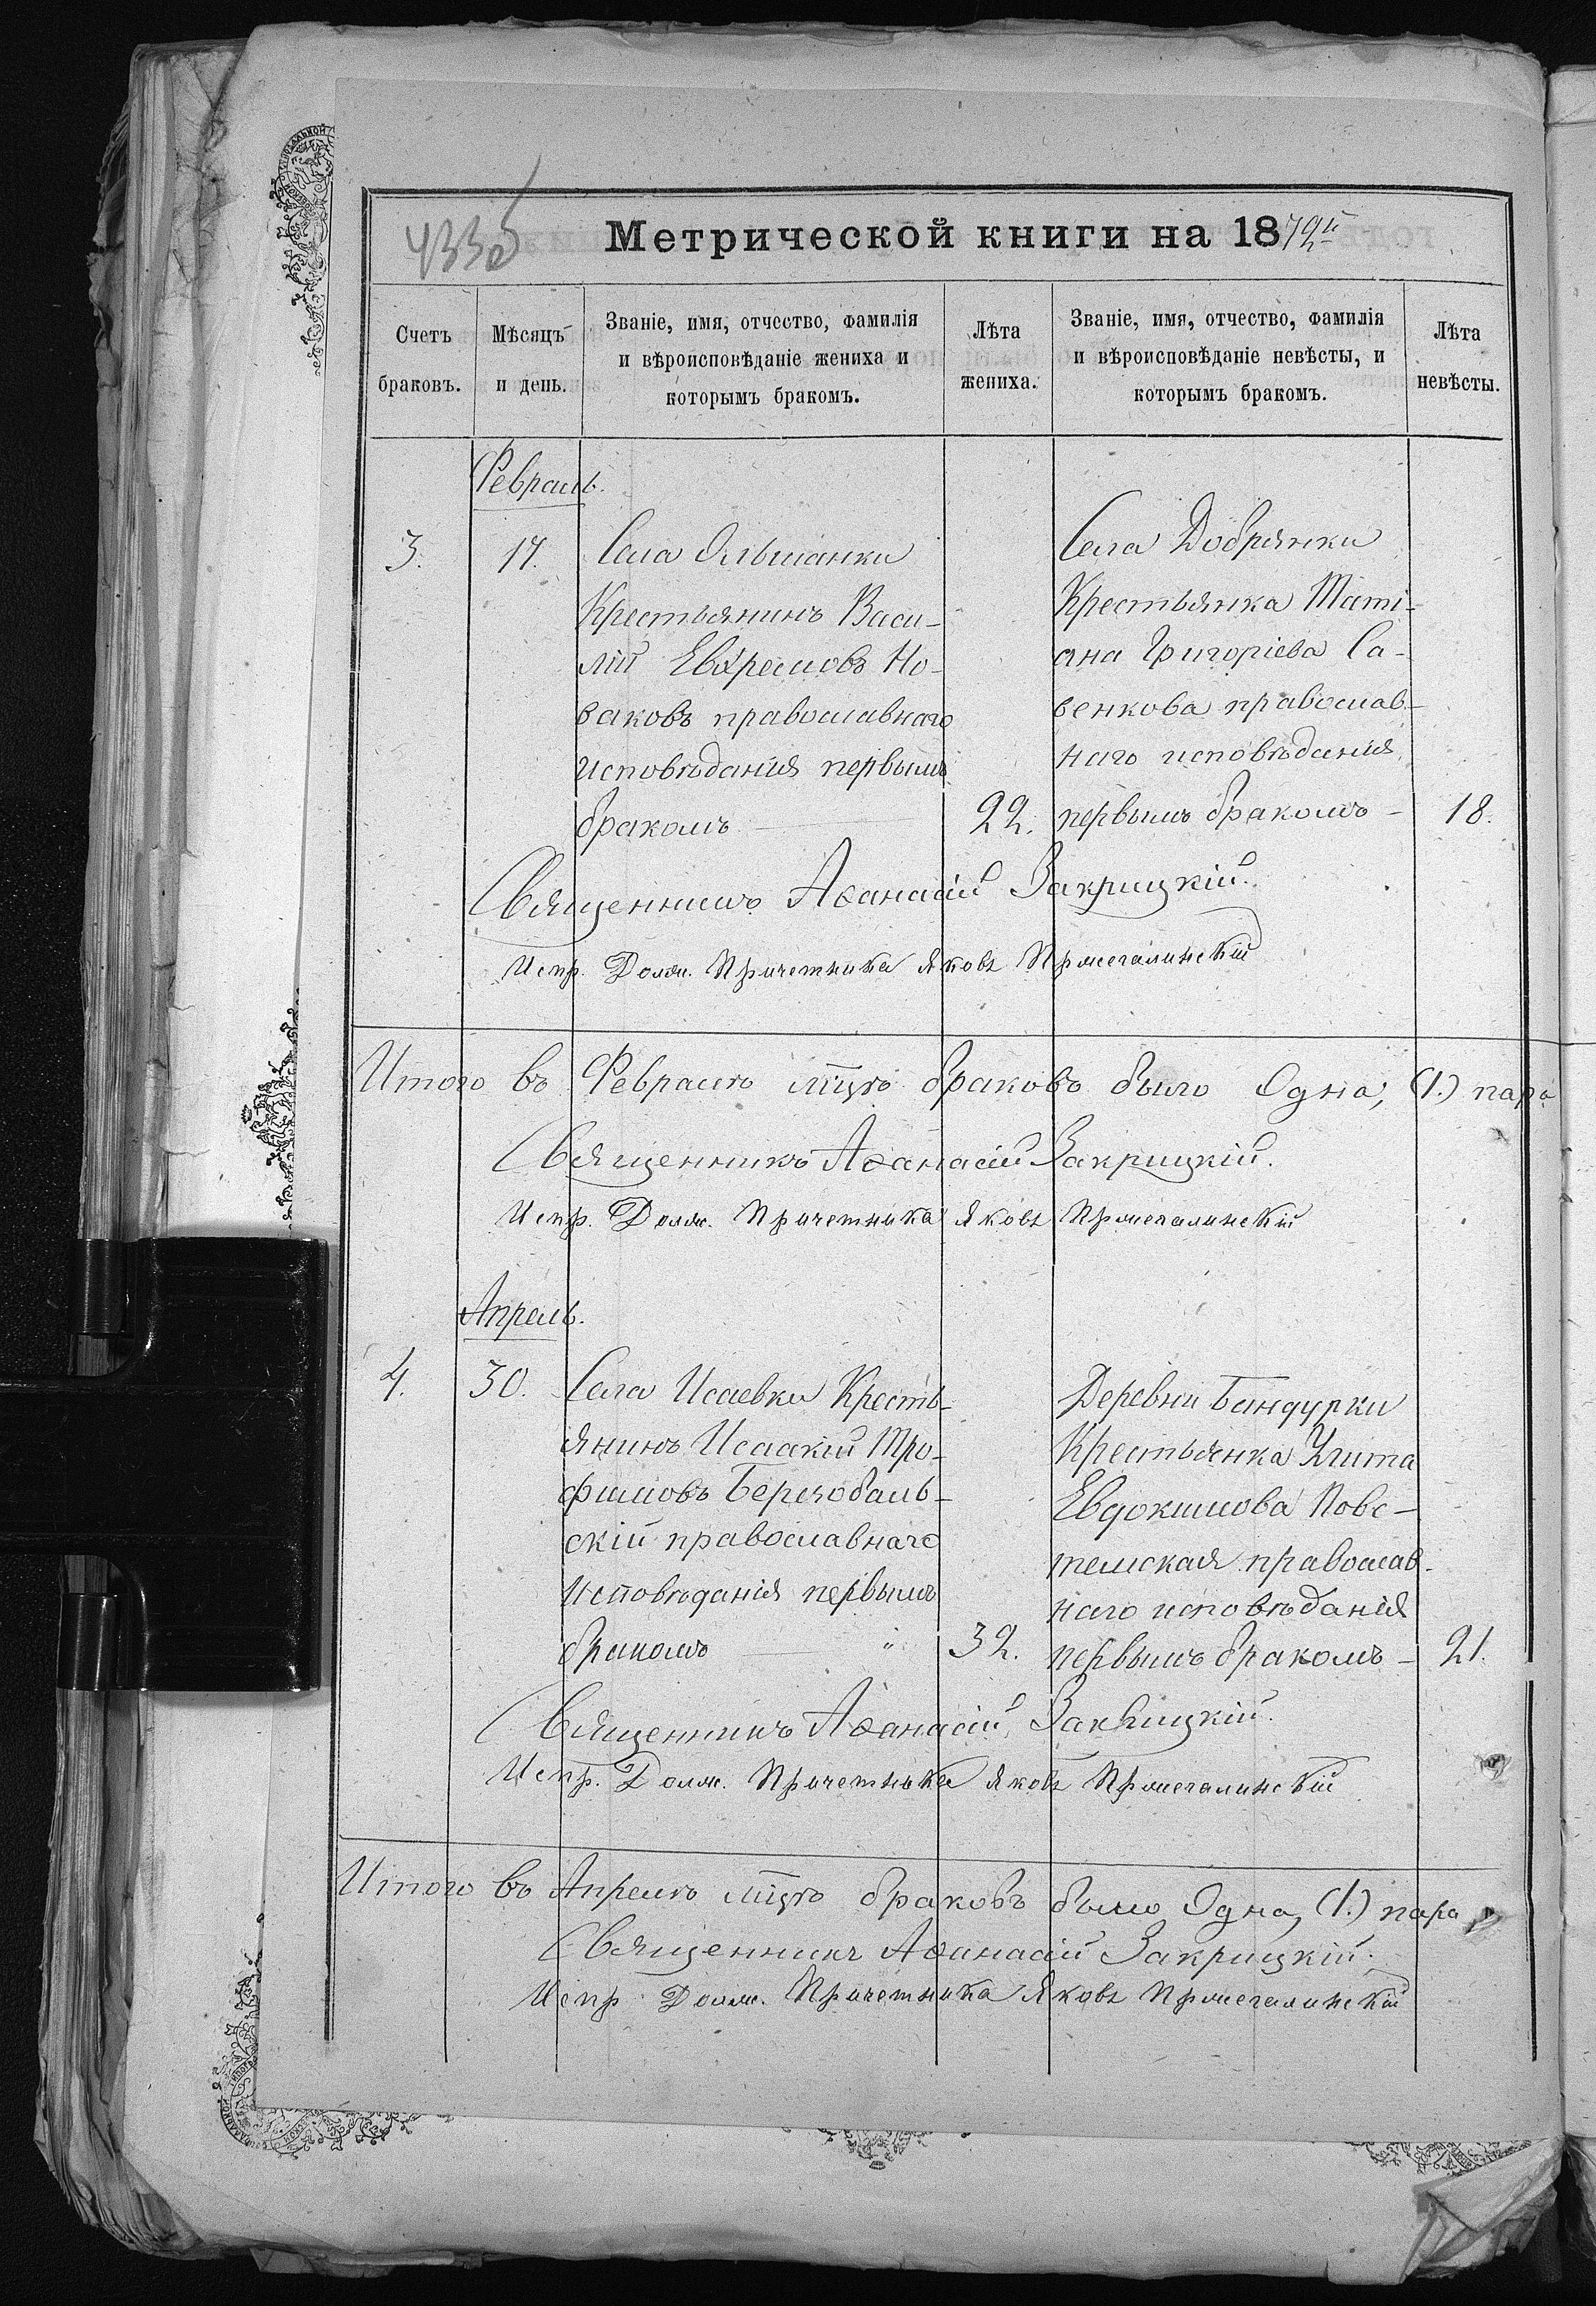 433б
Метрической книги на 1879й
Счетъ браковъ.
Мѣсяцъ и день.
Званіе, имя, отчество, фамилія
и вѣроисповѣданіе жениха и
которымъ бракомъ.
Лѣта жениха.
Званіе, имя, отчество, фамилія
и вѣроисповѣданіе невѣсты, и
которымъ бракомъ.
Лѣта невѣсты.
Февраль.
3.
17.
Села Ольшанки
Крестьянинъ Васи-
лій Евѳремовъ Но-
ваковъ православнаго
исповѣданія первымъ
бракомъ
22.
Села Добрянки
Крестьянка Таті-
ана Григоріева Са-
венкова православ-
наго исповѣданія
первымъ бракомъ
18.
Священникъ Аѳанасій Закрицкій.
Испр. Долж. Причетника Яковъ
Итого въ Февралѣ мцѣ браковъ было Одна, (1.) пара
Священникъ Аѳанасій Закрицкій.
Испр. Долж. Причетника Яковъ
Апрель.
4.
30.
Села Исаевки Кресть-
янинъ Исаакій Тро-
фимовъ Березобаль-
скій православнаго
исповѣданія первымъ
бракомъ
32.
Деревни Бандурки
Крестьянка Улита
Евдокимова
православ-
наго исповѣданія
первымъ бракомъ
21.
Священникъ Аѳанасій Закрицкій.
Испр. Долж. Причетника Яковъ
Итого въ Апрелѣ мцѣ браковъ было Одна, (1.) пара
Священникъ Аѳанасій Закрицкій.
Испр. Долж. Причетника Яковъ